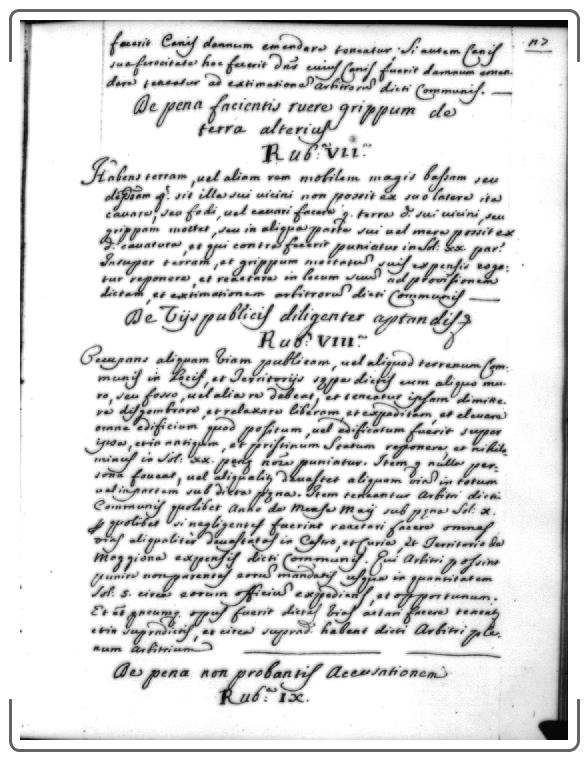 117
fecerit Canis damnum emendare teneatur. Si autem Canis
sua ferocitate hoc fecerit dn̄s cuius Canis fuerit damnum emen.
dare teneatur ad extimationē Arbitrorū dicti Communis. —
De pena facientis ruere grippum de
terra alterius
Rub.ᵃ VII.ᵃ
Habens terram, vel aliam rem mobilem magis bassam seu
sit illa sui vicini non possit ex suo latere ita
cavare, seu fodi, vel cavari facere q. terra d. sui vicini, seu
grippam mottet, seu in aliqua parte sui vel mere possit ex
d. cavatura, et qui contra fecerit puniatur in Sol. xx. par.
Insuper terram, et grippum moctatū suis expensis coga-
tur reponere, et reactare in locum suū ad provisionem
dictam, et extimationem arbitrorū dicti Communis —
De Vijs publicis diligenter aptandis
Rub.ᵃ VIII.ᵃ
Occupans aliquam Viam publicam, vel aliquod terrenum Com-
munis in Locis, et Territorijs sup.ᵃ dictis cum aliquo mu-
ro, seu fosso, vel alia re debeat, et teneatur ipsam dimitte-
re disgombrare, et relaxare liberam et expeditam et elevare
omne edificium quod positum, vel edificatum fuerit super
ipsa, et in antiquum, et pristinum Statum reponere, et nihilo
minus in Sol: xx. pęnę noīe puniatur. Item q. nulla per-
sona foveat, vel aliqualiṫ devastet aliquam viā in totum
vel in partem sub dicta pęna. Item teneantur Arbitri dicti
Communis quolibet Anno de Mense Maij sub pęna Sol: x.
ꝓ quolibet si negligentes fuerint reactari facere omnes
vias aliqualiter devastatas in Castro, et Curia, et Territorio de
Maggiona expensis dicti Communis. Qui Arbitri possint
punire non parentes eorū mandatis usque in quantitatem
Sol: 5. circa eorum officiū expediens, et opportunum.
Et ēt quęcumq. opus fuerit dictas vias actari facere teneaṫ
etiā supradictis, et circa suprad. habent dicti Arbitri ple-
num Arbitrium
De pena non probantis Accusationem
Rub.ᵃ IX.